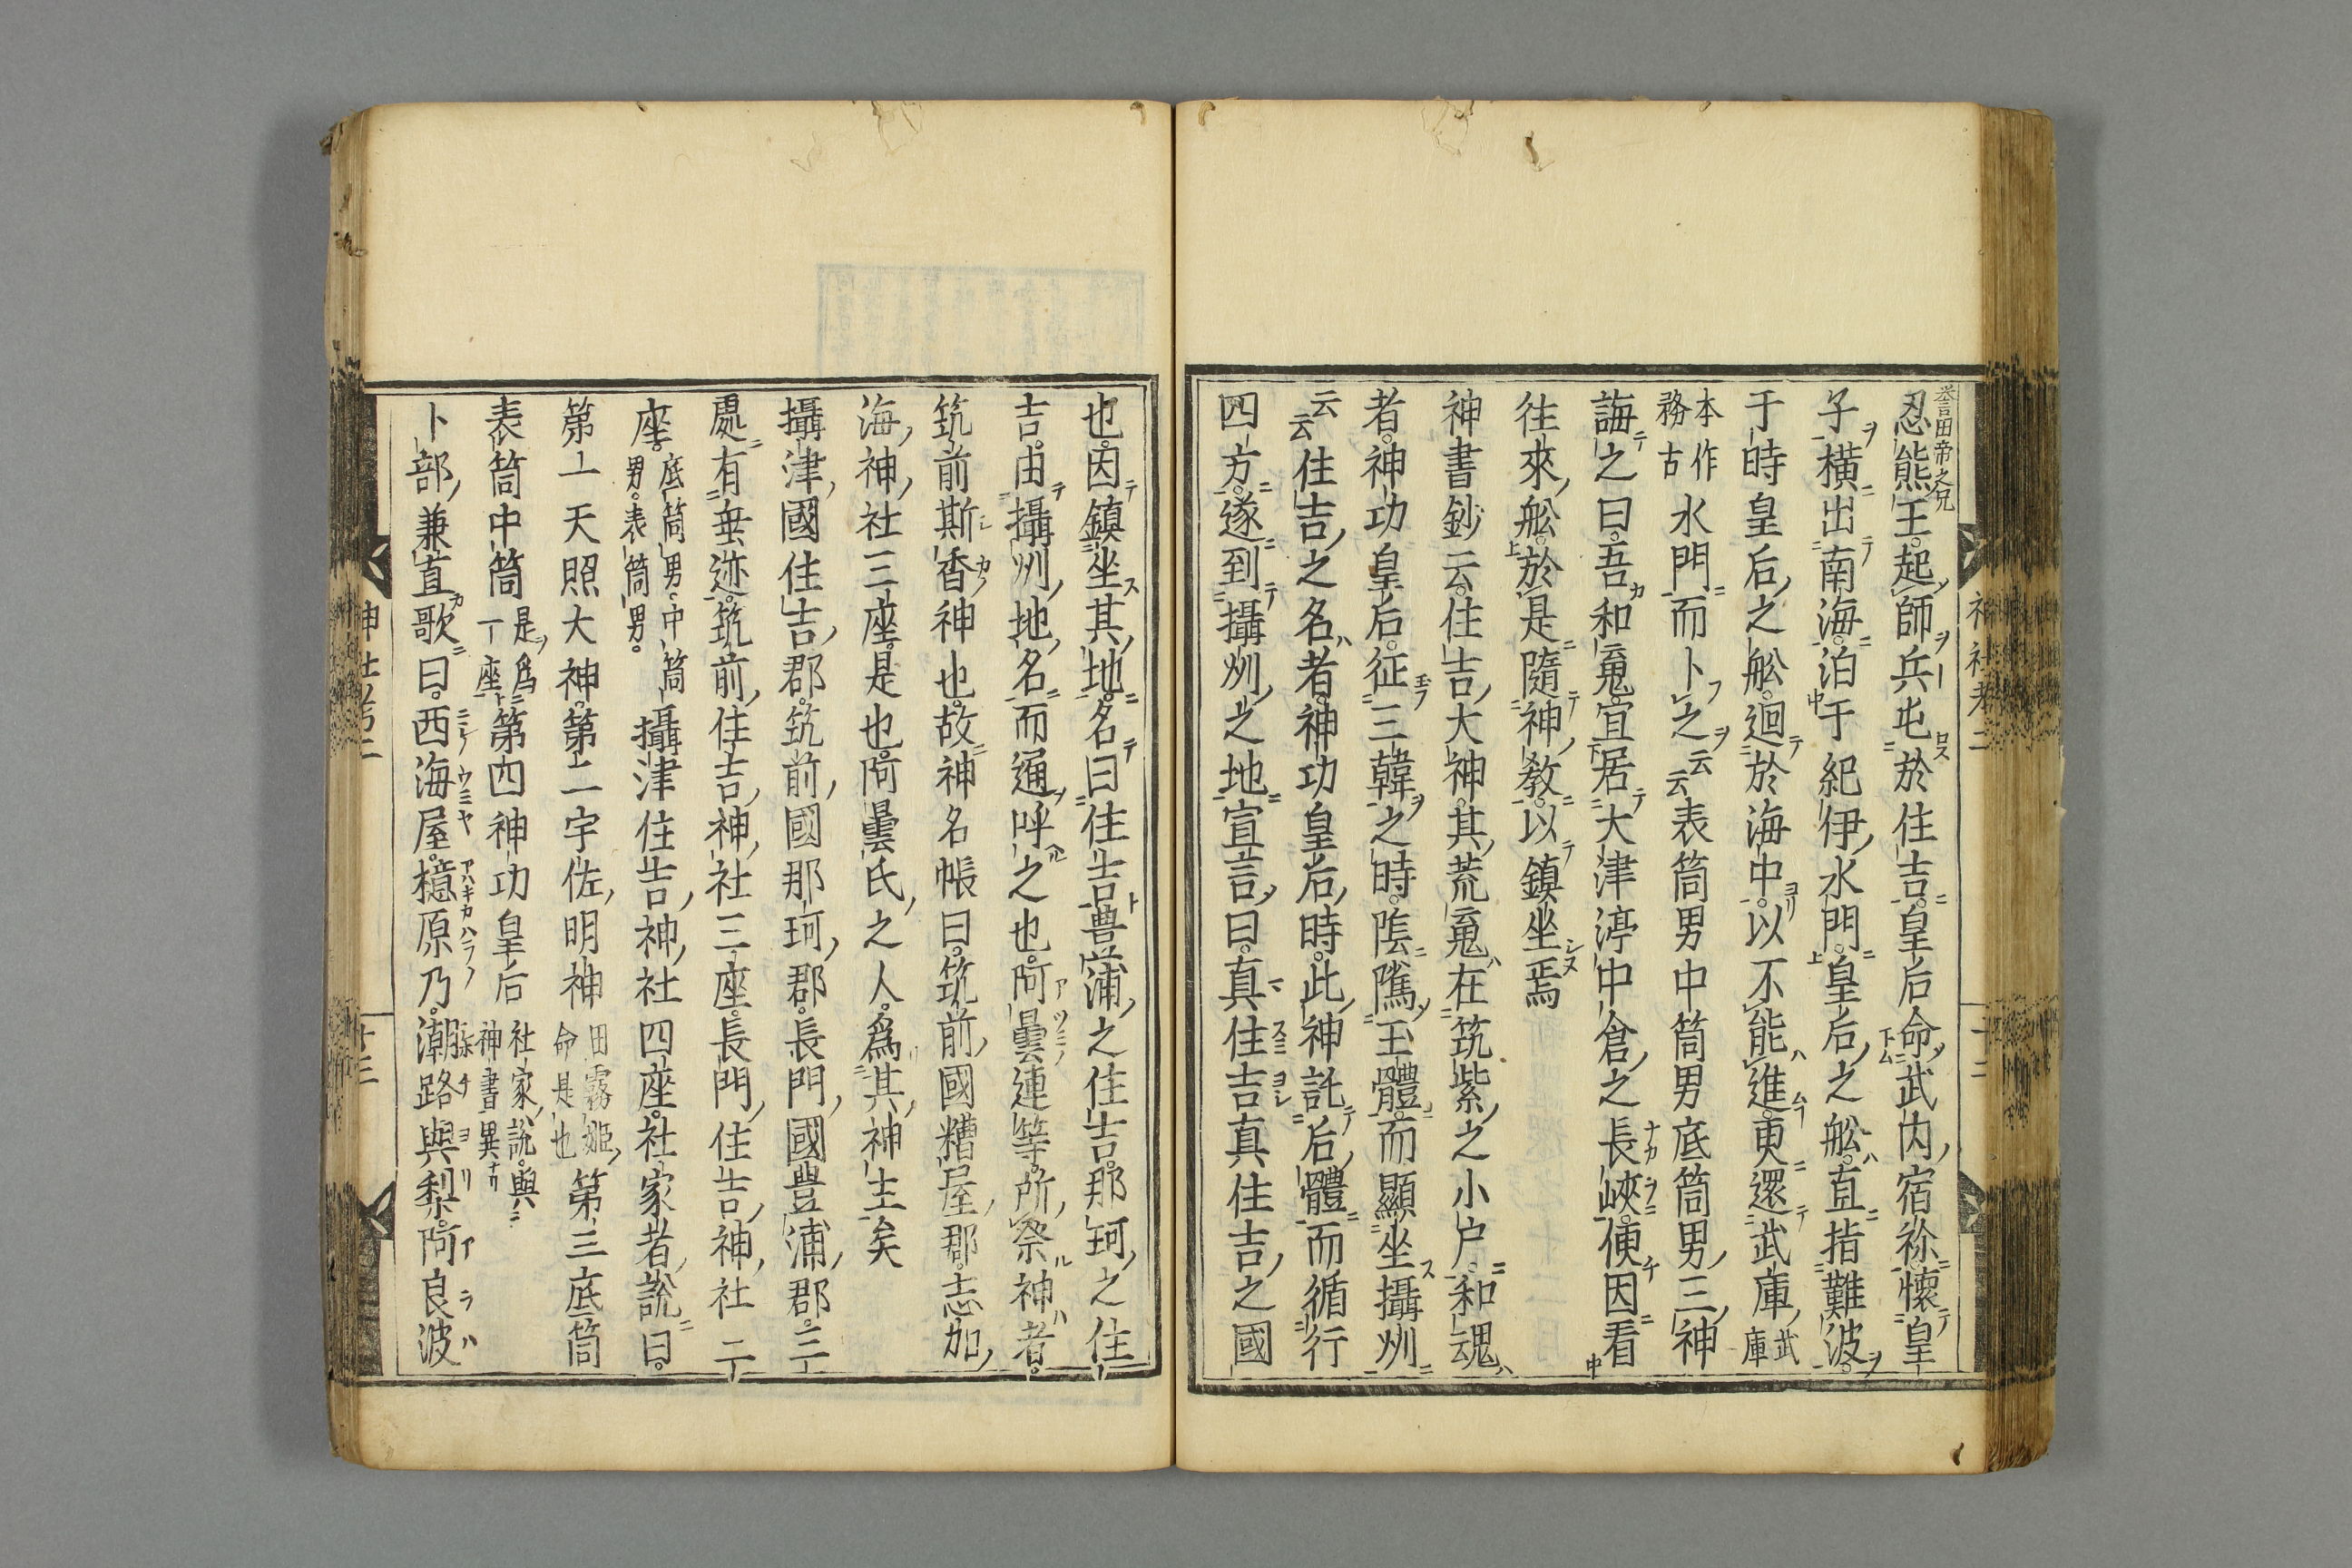 誉田帝之兄
忍熊王。起師兵屯於住吉。皇后命武内宿祢。懷皇
子横出南海。泊于紀伊水門。皇后之舩。直指難波。
于時皇后之舩。迴於海中。以不能進。更還武庫武庫
本作務古水門而卜之云云表筒男中筒男底筒男三神
誨之曰。吾和䰟宜居大津渟中倉之長峽。便因看
往來舩。於是隨神教。以鎮坐焉
神書鈔云。住吉大神。其荒䰟在筑紫之小戸。和魂
者。神功皇后。征三韓之時。隂隲玉體。而顯坐攝州
云云住吉之名者。神功皇后時。此神託后體而循行
四方。遂到攝州之地宣言曰。真住吉真住吉之國
也。因鎮坐其地。名曰住吉。豊浦之住吉。那珂之住
吉。由攝州地名而通呼之也。阿曇連等。所祭神者。
筑前斯香神也。故神名帳曰。筑前國糟屋郡。志加
海神社三座。是也。阿曇氏之人。爲其神主矣
攝津國住吉郡。筑前國那珂郡。長門國豊浦郡。三
處有垂迹。筑前住吉神社三座。長門住吉神社二
座。底筒男。中筒男。表筒男。攝津住吉神社四座。社家者説曰。
第一天照大神。第二宇佐明神田霧姫命是也第三底筒
表筒中筒是爲一座第四神功皇后社家説。與神書異
卜部兼直歌曰。西海屋。檍原乃。潮路與梨。阿良波
神社考二
十三
神社考二
十三